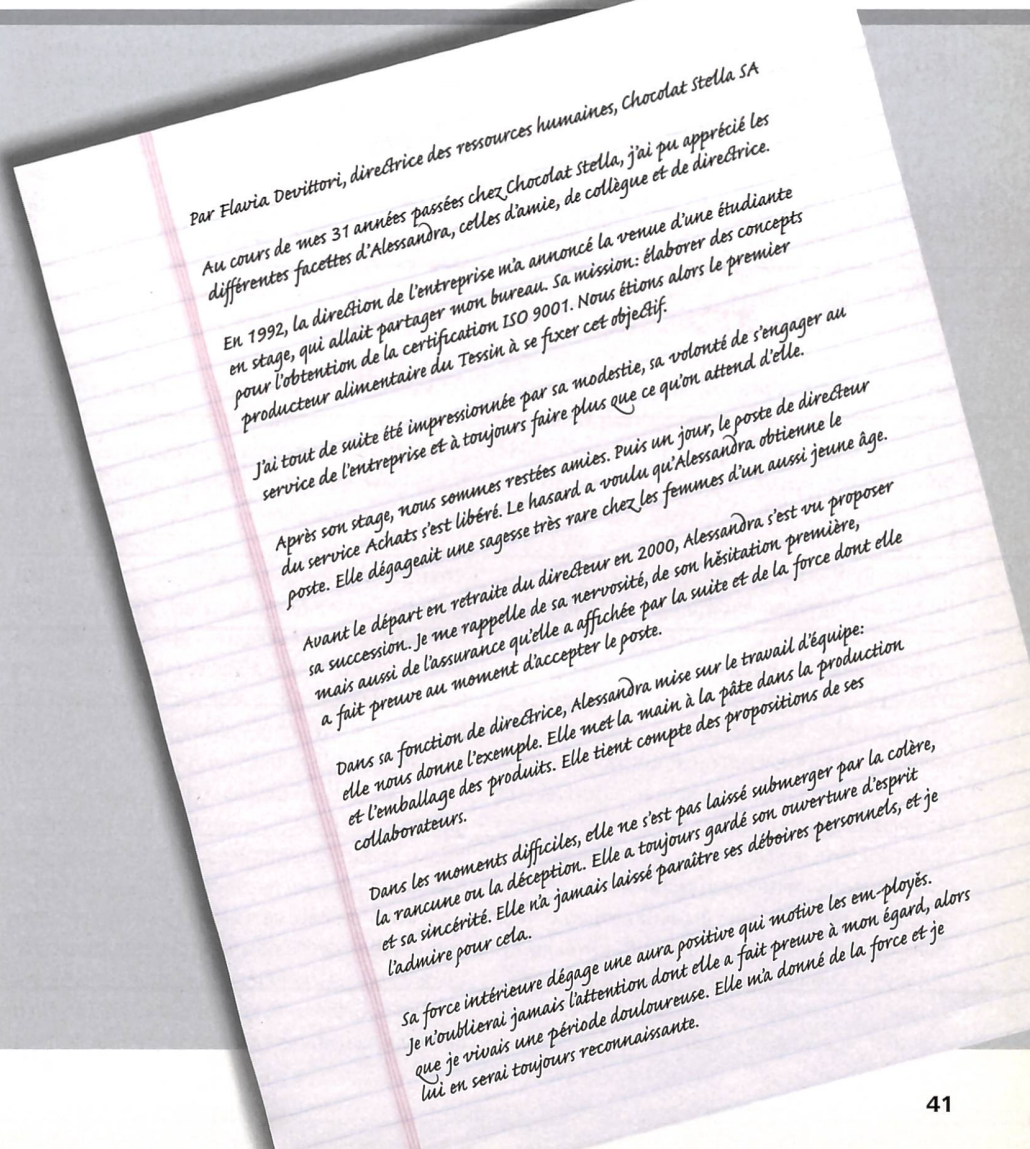 Par Flavia Devittori, directrice des ressources humaines, Chocolat Stella SA
Au cours de mes 31 années passées chez Chocolat Stella, j'ai pu apprécié les
différentes facettes d'Alessandra, celles d'amie, de collègue et de directrice.
En 1992, la direction de l'entreprise m'a annoncé la venue d'une étudiante
en stage, qui allait partager mon bureau. Sa mission: élaborer des concepts
pour l'obtention de la certification ISO 9001. Nous étions alors le premier
producteur alimentaire du Tessin à se fixer cet objectif.
J'ai tout de suite été impressionnée par sa modestie, sa volonté de s'engager au
service de l'entreprise et à toujours faire plus que ce qu'on attend d'elle.
Après son stage, nous sommes restées amies. Puis un jour, le poste de directeur
du service Achats s'est libéré. Le hasard a voulu qu'Alessandra obtienne le
poste. Elle dégageait une sagesse très rare chez les femmes d'un aussi jeune âge.
Avant le départ en retraite du directeur en 2000, Alessandra s'est vu proposer
sa succession. Je me rappelle de sa nervosité, de son hěsitation première,
mais aussi de l'assurance qu'elle a affichée par la suite et de la force dont elle
a fait preuve au moment d'accepter le poste.
Dans sa fonction de directrice, Alessandra mise sur le travail d'équipe:
elle nous donne l'exemple. Elle met la main à la pâte dans la production
et l'emballage des produits. Elle tient compte des propositions de ses
collaborateurs.
Dans les moments difficiles, elle ne s'est pas laissé submerger par la colère,
la rancune ou la déception. Elle a toujours gardé son ouverture d'esprit
et sa sincérité. Elle n'a jamais laissé paraître ses déboires personnels, et je
l'admire pour cela.
Sa force intérieure dégage une aura positive qui motive les em-ployěs.
Je n'oublierai jamais l'attention dont elle a fait preuve à mon égard, alors
que je vivais une période douloureuse. Elle m'a donné de la force et je
lui en serai toujours reconnaissante.
41